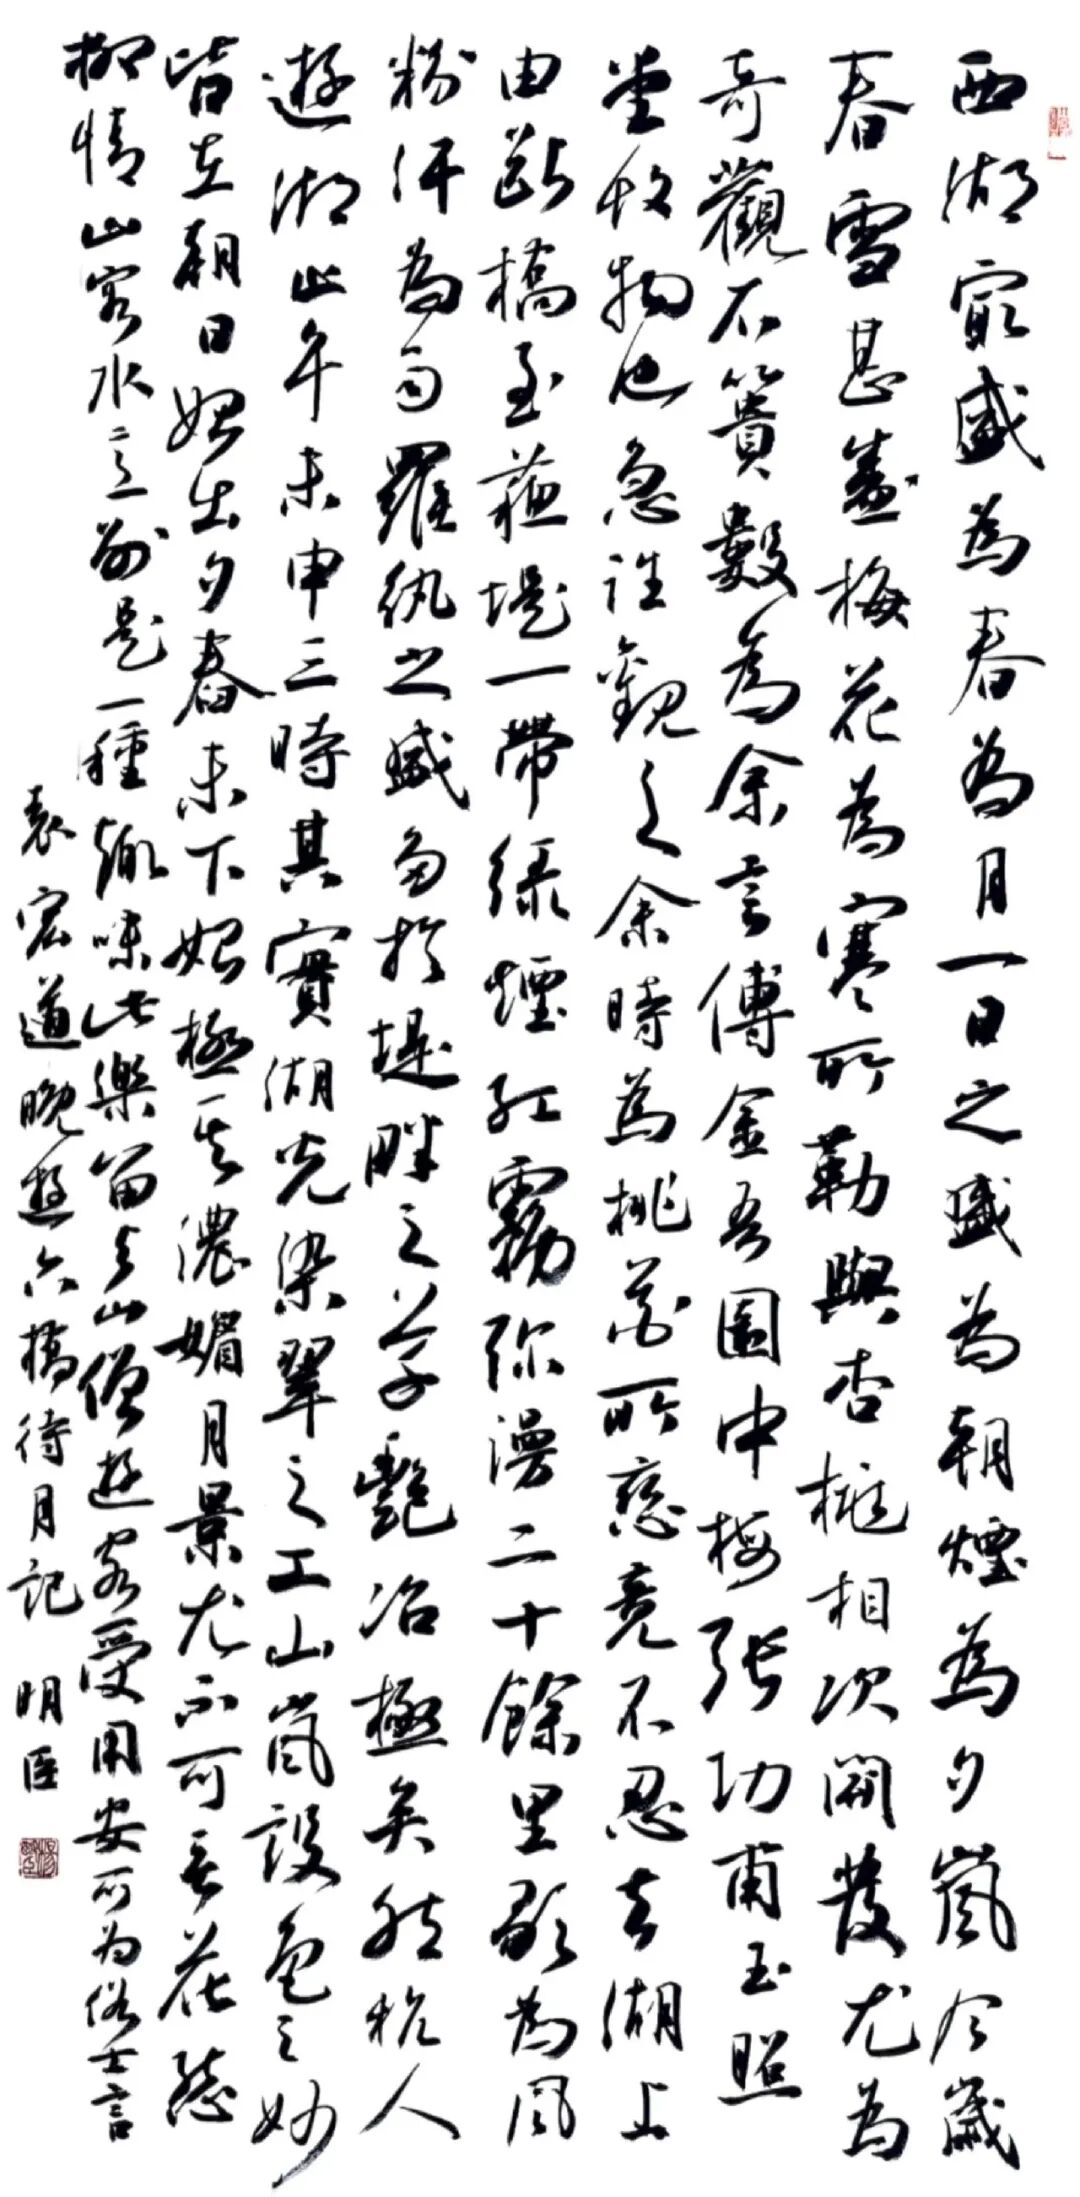 西湖最盛為春為月一日之盛為朝煙為夕嵐今歲
春雪甚盛梅花為寒所勒與杏桃相次開發尤為
奇觀石簣數為余言傅金吾園中梅張功甫玉照
堂故物也急往觀之余時為桃花所戀竟不忍去湖上
由斷橋至蘇堤一帶綠煙紅霧弥漫二十餘里歌為風
粉汗為雨羅紈之盛多於堤畔之草艷冶極矣然杭人
遊湖止午未申三時其實湖光染翠之工山嵐設色之妙
皆在朝日始出夕舂未下始極其濃媚月景尤不可言花態
柳情山容水意別是一種趣味此樂留與山僧遊客受用安可為俗士言
袁宏道晚遊六橋待月記 明臣